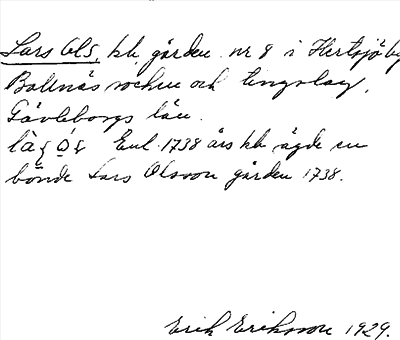 Lars Ols, kb. gården nr 8 i Hertsjö by
Bollnäs socken och tingslag,
Gävleborgs län.
Enl. 1738 års kb ägde en
bonde Lars Olsson gården 1738.
Erik Eriksson 1929.